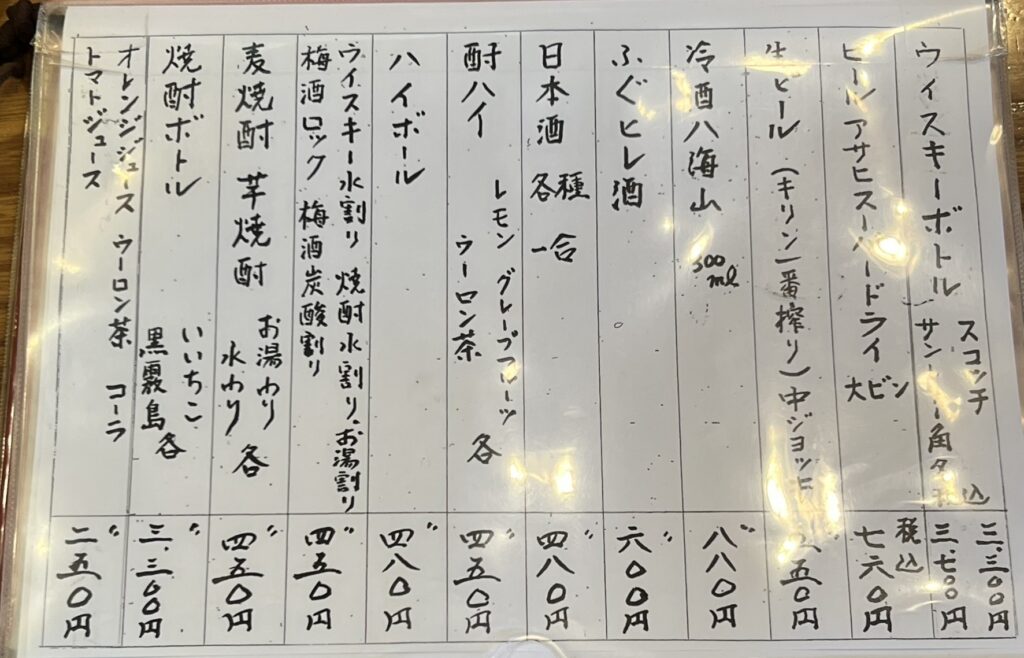 ウィスキーボトル スコッチ 三.三〇〇円
サントリー角 込 三.七〇〇円
ビール アサヒスーパードライ 大ビン 税込 七六〇円
生ビール (キリン一番搾り) 中ジョッキ 五〇円
冷酒八海山 300ml 〃 八八〇円
ふぐヒレ酒 〃 六〇〇円
日本酒 各種 一合 〃 四八〇円
酎ハイ レモン グレープフルーツ
ウーロン茶 各 〃 四五〇円
ハイボール 〃 四八〇円
ウイスキー水割り 焼酎水割り、お湯割り
梅酒ロック 梅酒炭酸割り 〃 四五〇円
麦焼酎 芋焼酎 お湯わり
水わり 各 〃 四五〇円
焼酎ボトル いいちこ
黒霧島 各 〃 三.三〇〇円
オレンジジュース ウーロン茶 コーラ
トマトジュース 〃 二五〇円